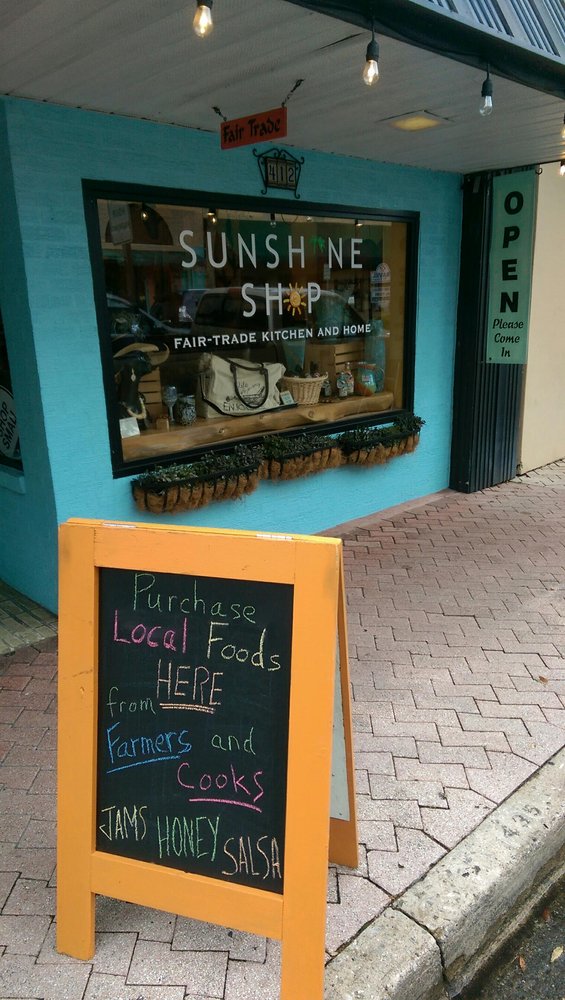 Fair Trade
412
SUNSHINE
SHOP
FAIR-TRADE KITCHEN AND HOME
OPEN
Please
Come
In
Purchase
Local Foods
HERE
from
Farmers and
Cooks
JAMS HONEY SALSA
435